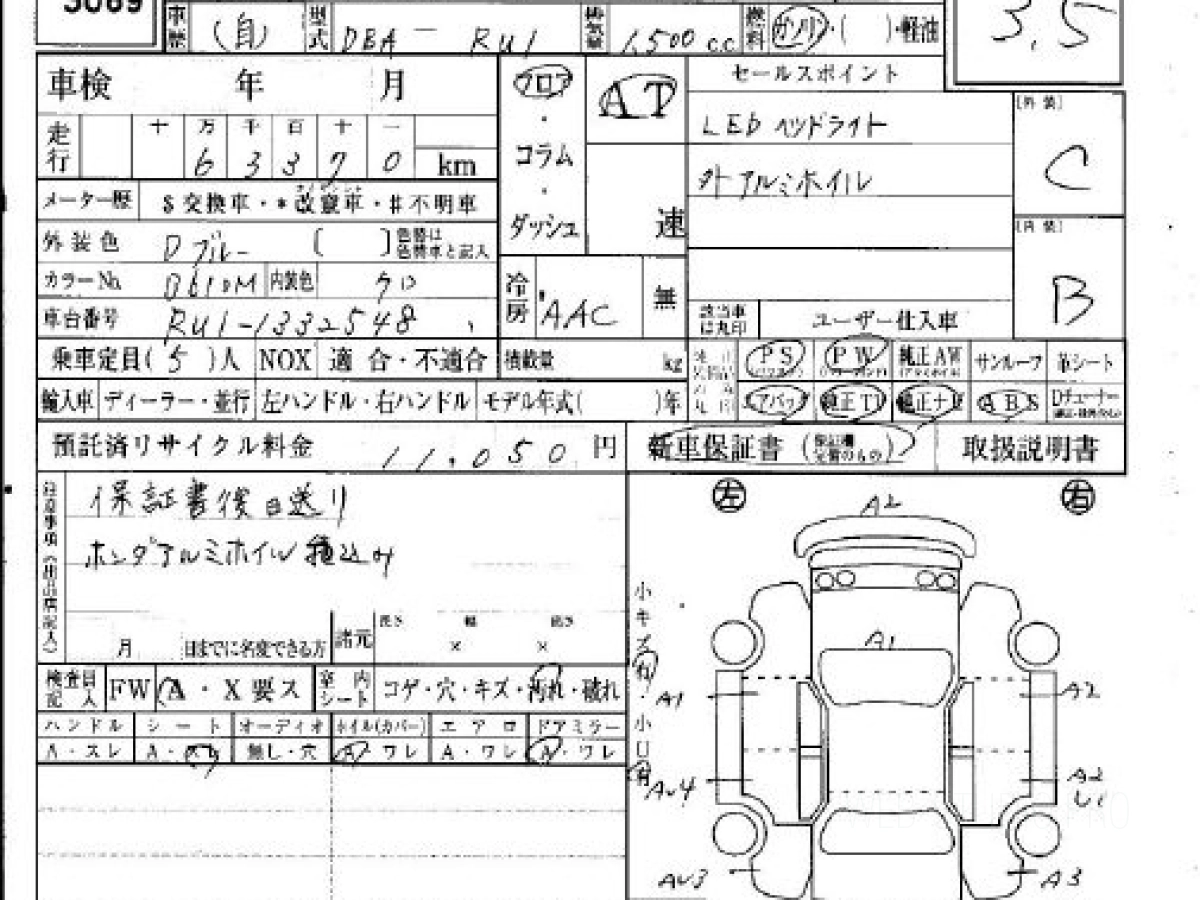 5089
車歴 (自) 型式 DBA - RU1 排気量 1,500 cc 燃料 ガソリン・( )・軽油
3.5
車検 年 月
フロア・コラム・ダッシュ
AT
速
セールスポイント
LEDヘッドライト
外 アルミホイル
[外装] C
[内装] B
走行 十 万 千 百 十 一
6 3 3 7 0 km
メーター歴 $交換車・*改竄車・#不明車
外装色 Dブルー [ ] 色替は色替車と記入
カラーNo. B610M 内装色 クロ
車台番号 RU1-1332548
冷房 AAC 無
該当車は丸印 ユーザー仕入車
乗車定員( 5 )人 NOX 適合・不適合 積載量 kg
PS PW 純正AW サンルーフ 革シート
輸入車 ディーラー・並行 左ハンドル・右ハンドル モデル年式( )年
エアバッグ 純正TV 純正ナビ ABS Dチューナー
預託済リサイクル料金 11,050 円
新車保証書 (保証欄記載のもの) 取扱説明書
注意事項(出品店記入)
保証書後日送り
ホンダアルミホイル積込み
月 日までに名変できる方 諸元 長さ 幅 高さ
× ×
検査員記入 FW A・X要ス 室内シート コゲ・穴・キズ・汚れ・破れ
ハンドル シート オーディオ ホイル(カバー) エアロ ドアミラー
A・スレ A・スレ 無し・穴 A・ワレ A・ワレ A・ワレ
左 右
小キズ有・小凹有
A2
A1
A1 A2
AU4 A2
U1
AU3 A3